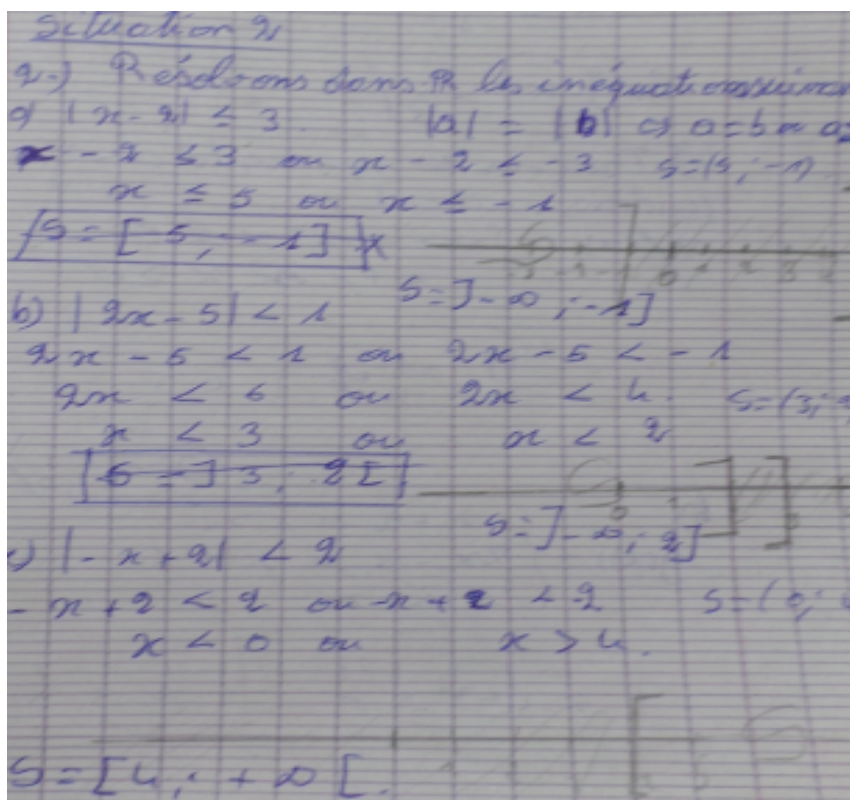 Situation 2
2-) Résolvons dans ℝ les inéquations suivan
a) |x - 2| ≤ 3. |a| = |b| ⇔ a = b ou a =
x - 2 ≤ 3 ou x - 2 ≤ - 3 S = (5 ; -1)
x ≤ 5 ou x ≤ - 1
S = [ 5 ; - 1 ] x
S = ] - ∞ ; - 1 ]
b) | 2x - 5 | < 1
2x - 5 < 1 ou 2x - 5 < - 1
2x < 6 ou 2x < 4 S = (3 ;
x < 3 ou x < 2
S = ] 3 ; 2 [
S = ] - ∞ ; 2 ]
c) | - x + 2 | < 2
- x + 2 < 2 ou - x + 2 < - 2 S = ( 0 ;
x < 0 ou x > 4 .
S = [ 4 ; + ∞ [ .